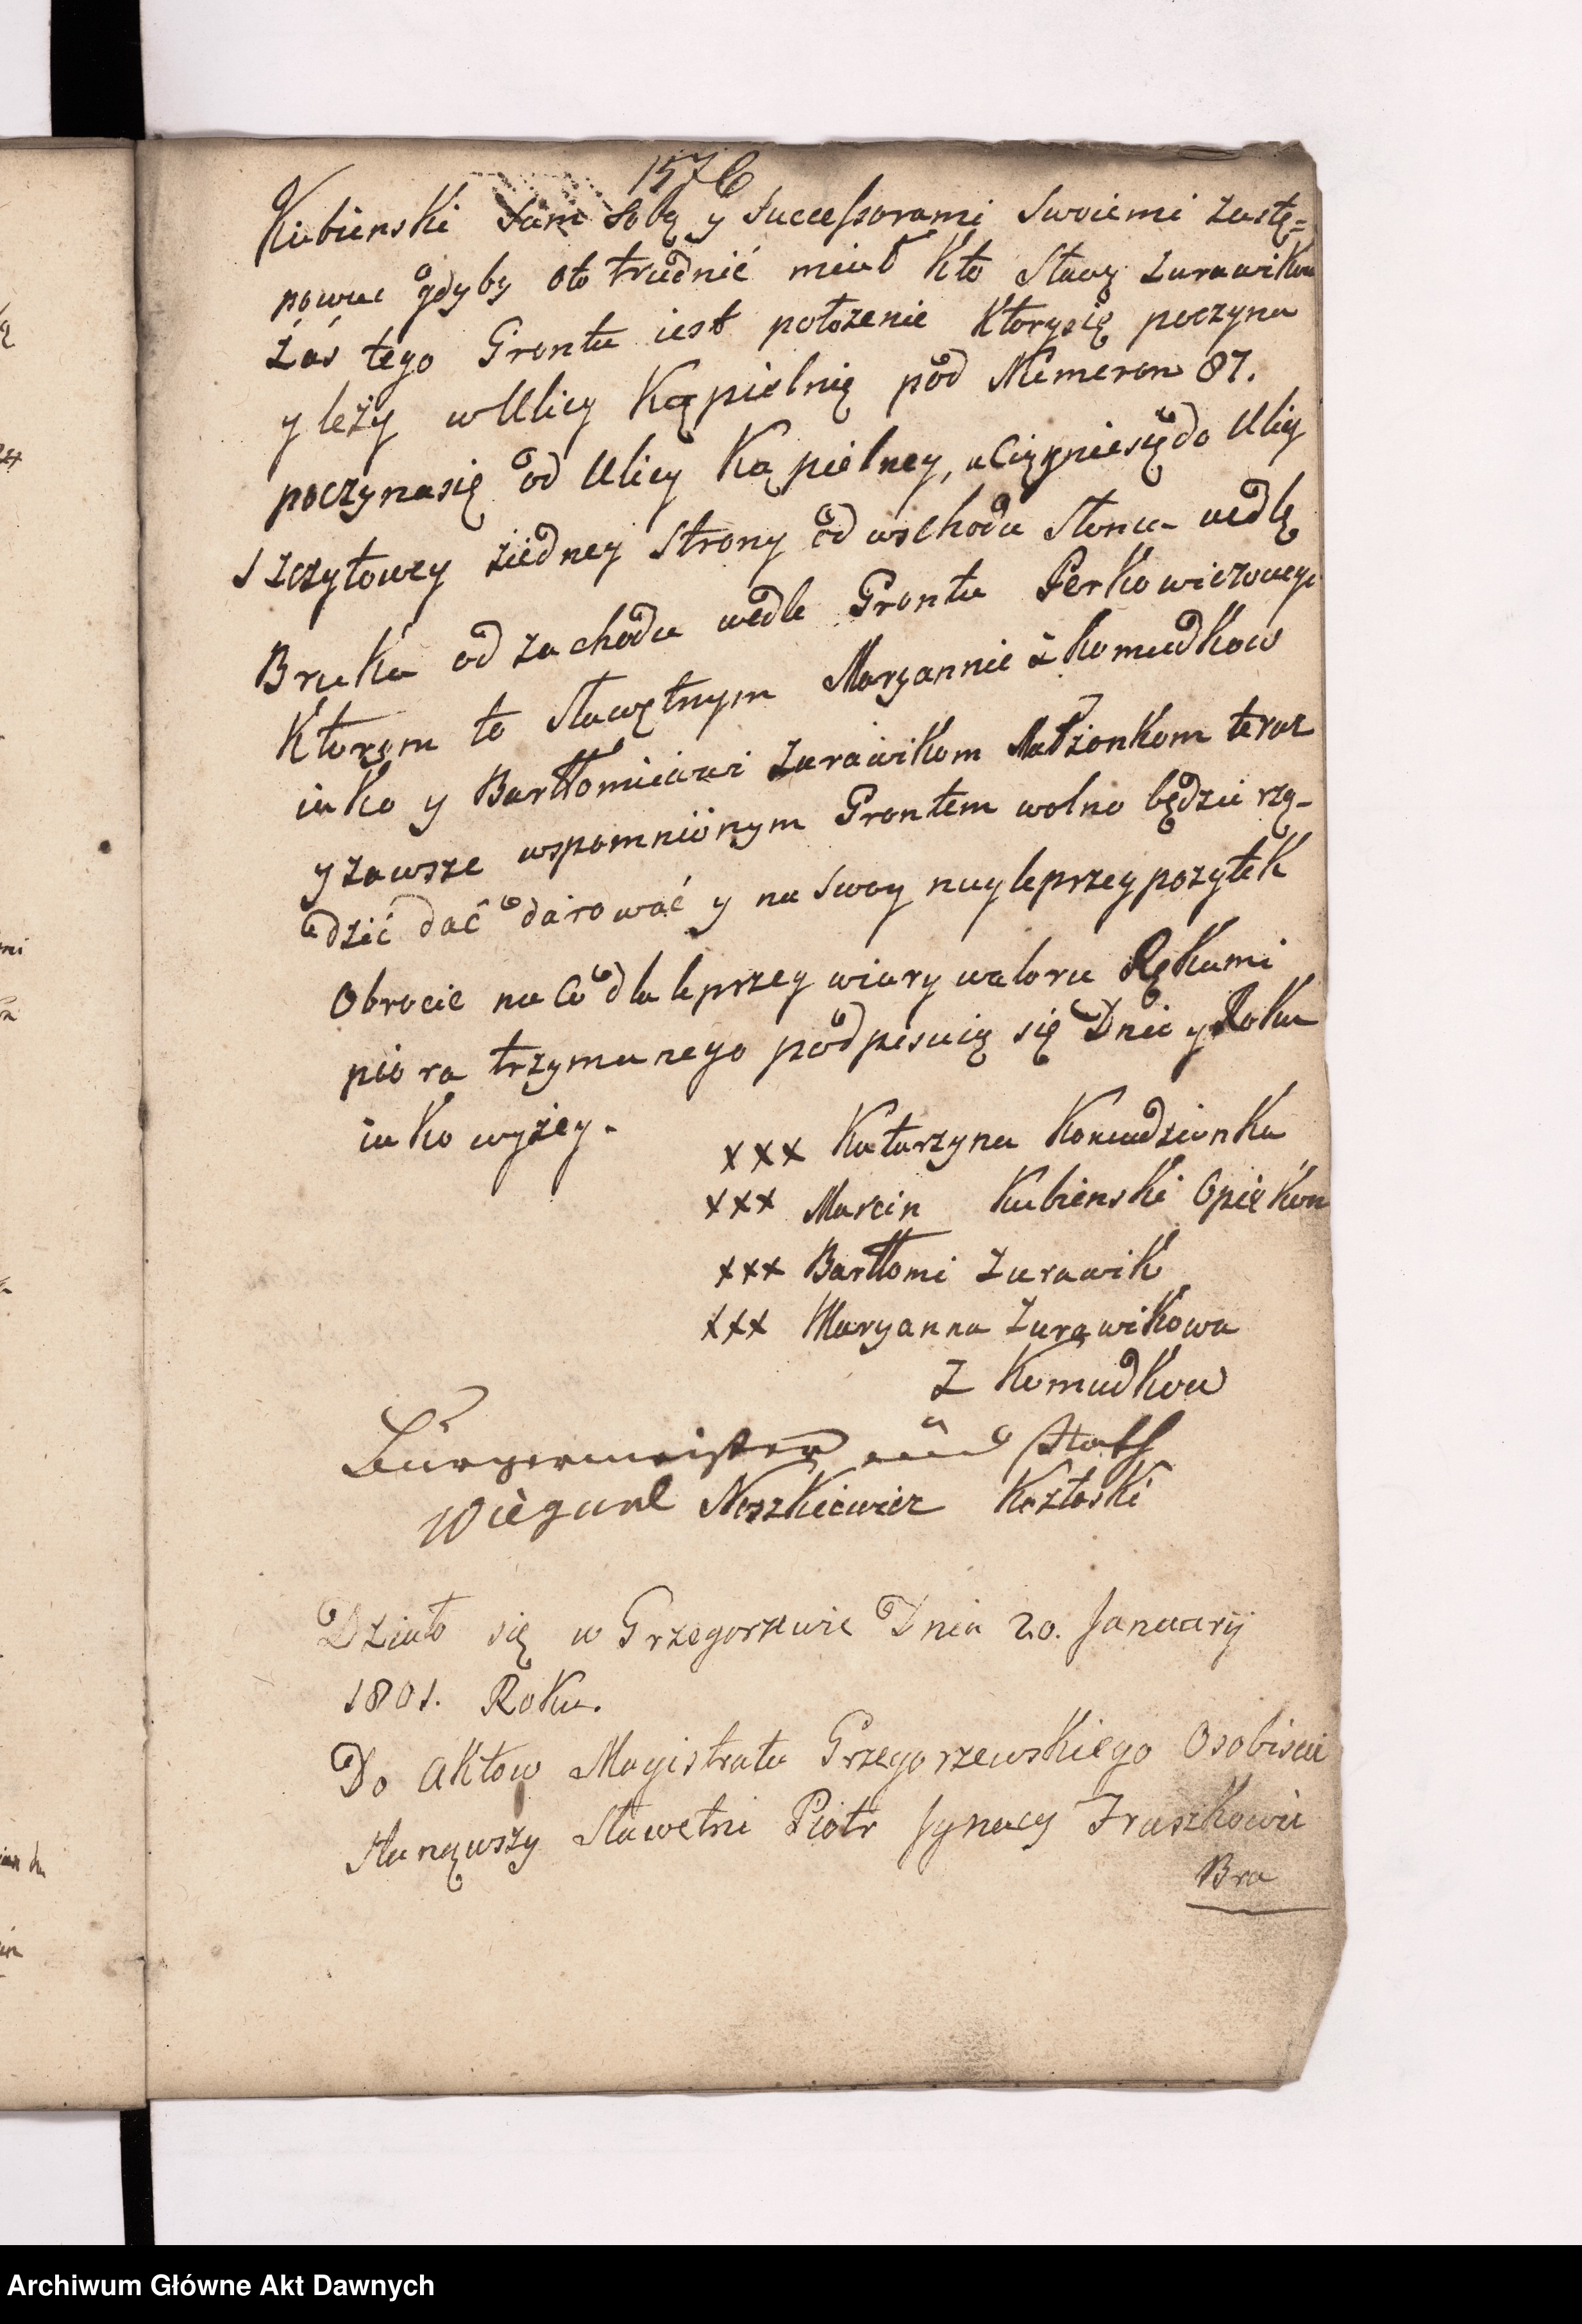 1576
Kubienski Sam Sobą y Succeſsorami Swoiemi zastę=
powac gdyby o to trudnić miał Kto Sławę Zurawikow
Zás tego Grontu iest położenie Ktorysię poczyna
y leży w Ulicy Kąpielnię pod Numeron 87.
poczynasię od Ulicy Kąpielney, a Ciągniesię do Ulicy
Szczytowey ziedney strony od wschodu słonca wedlę
Bruku od zachodu wedle Grontu Perkowiczowego
Ktorym to sławętnym Maryannie z Komudkow
iako y Bartłomieiowi Zurawikom Małżonkom teraz
y zawsze wspomnionym Grontem wolno będzie rzą-
dzić dać darować y na swoy nayleprzey pozytek
Obrocic na Co dla leprzey wiary waloru Rękami
piora trzymanego podpisuią się Dnia y Roku
iako wyżey.
xxx Katarzyna Komudzionka
xxx Marcin Kubienski Opiekun
xxx Bartłomi Zurawik
xxx Maryanna Zurawikowa
Z Komudkow
Bürgermeister und Rath
Wiegand Noszkiewicz Kozłoski
Działo się w Grzegorzewie Dnia 20. Januarij
1801. Roku.
Do Aktow Magistratu Grzegorzewskiego Osobiscie
stanąwszy Sławetni Piotr Jgnacy Fraszkowie
Bra
Archiwum Główne Akt Dawnych